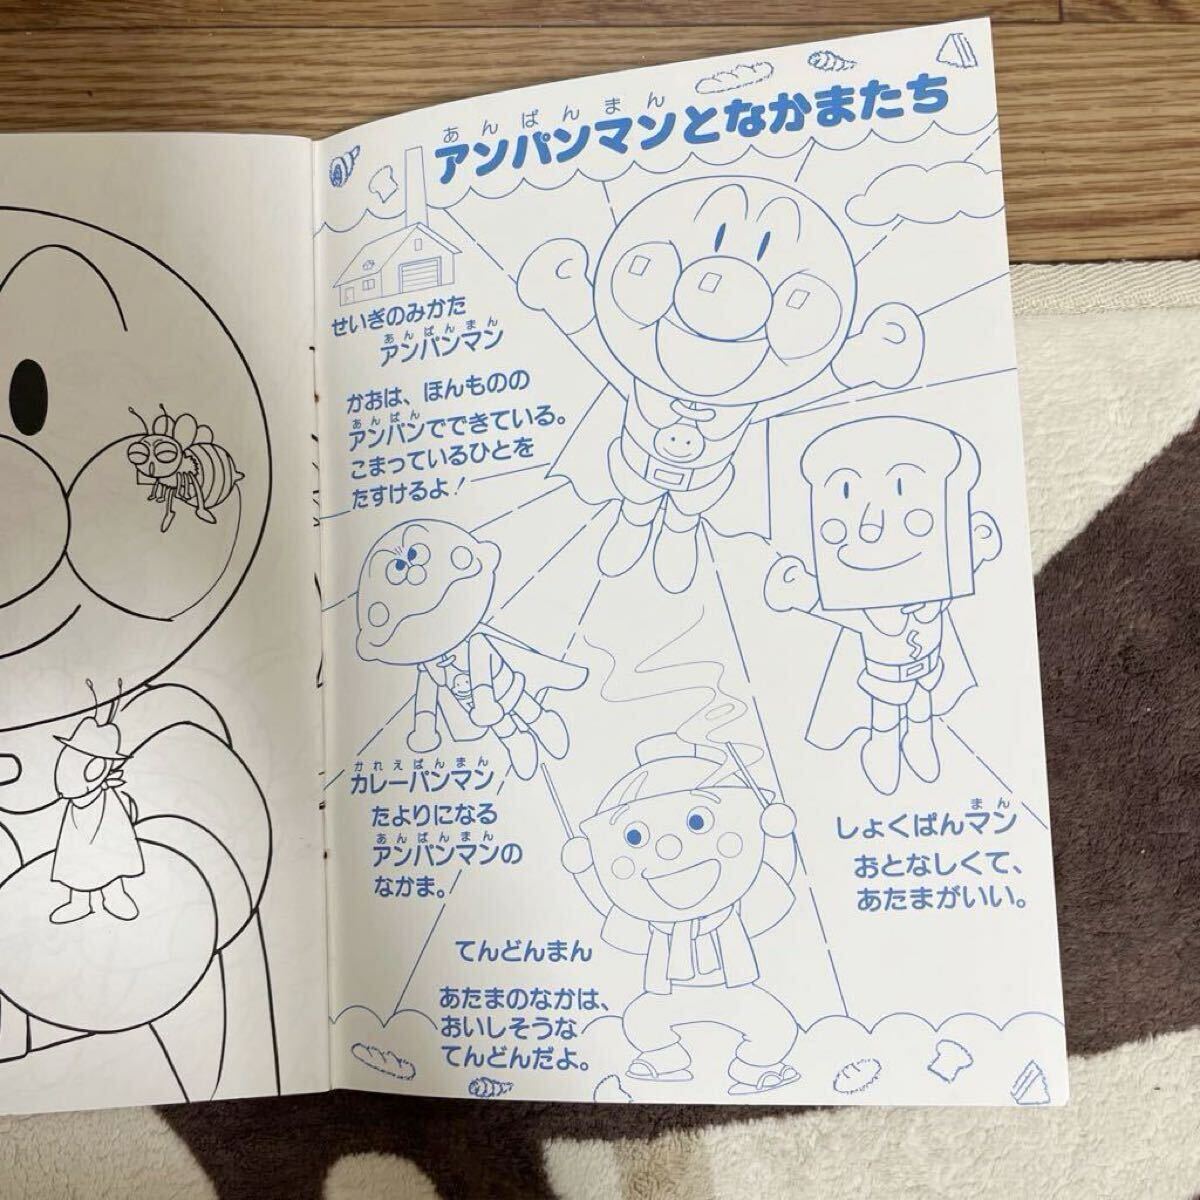 あんぱんまん
アンパンマンとなかまたち
せいぎのみかた
あんぱんまん
アンパンマン
かおは、ほんものの
あんぱん
アンパンでできている。
こまっているひとを
たすけるよ！
かれえぱんまん
カレーパンマン
たよりになる
あんぱんまん
アンパンマンの
なかま。
まん
しょくぱんマン
おとなしくて、
あたまがいい。
てんどんまん
あたまのなかは、
おいしそうな
てんどんだよ。